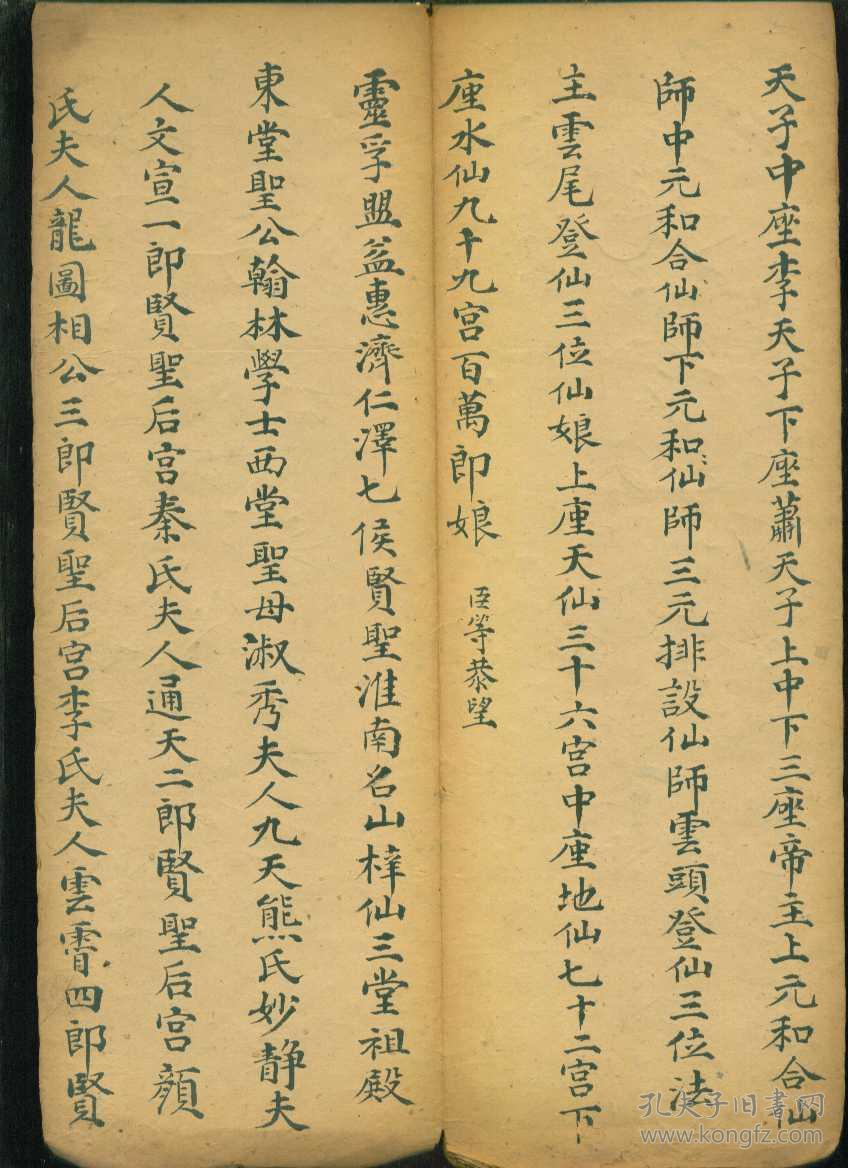 天子中座李天子下座蕭天子上中下三座帝主上元和合仙
師中元和合仙師下元和仙師三元排設仙師雲頭登仙三位法
主雲尾登仙三位仙娘上座天仙三十六宮中座地仙七十二宮下
座水仙九十九宮百萬郎娘 臣等恭望
靈孚盟益惠濟仁澤七侯賢聖淮南名山梓仙三堂祖殿
東堂聖公翰林學士西堂聖母淑秀夫人九天熊氏妙静夫
人文宣一郎賢聖后宮秦氏夫人通天二郎賢聖后宮顏
氏夫人龍圖相公三郎賢聖后宮李氏夫人雲霄四郎賢
孔夫子旧書网
www.kongfz.com